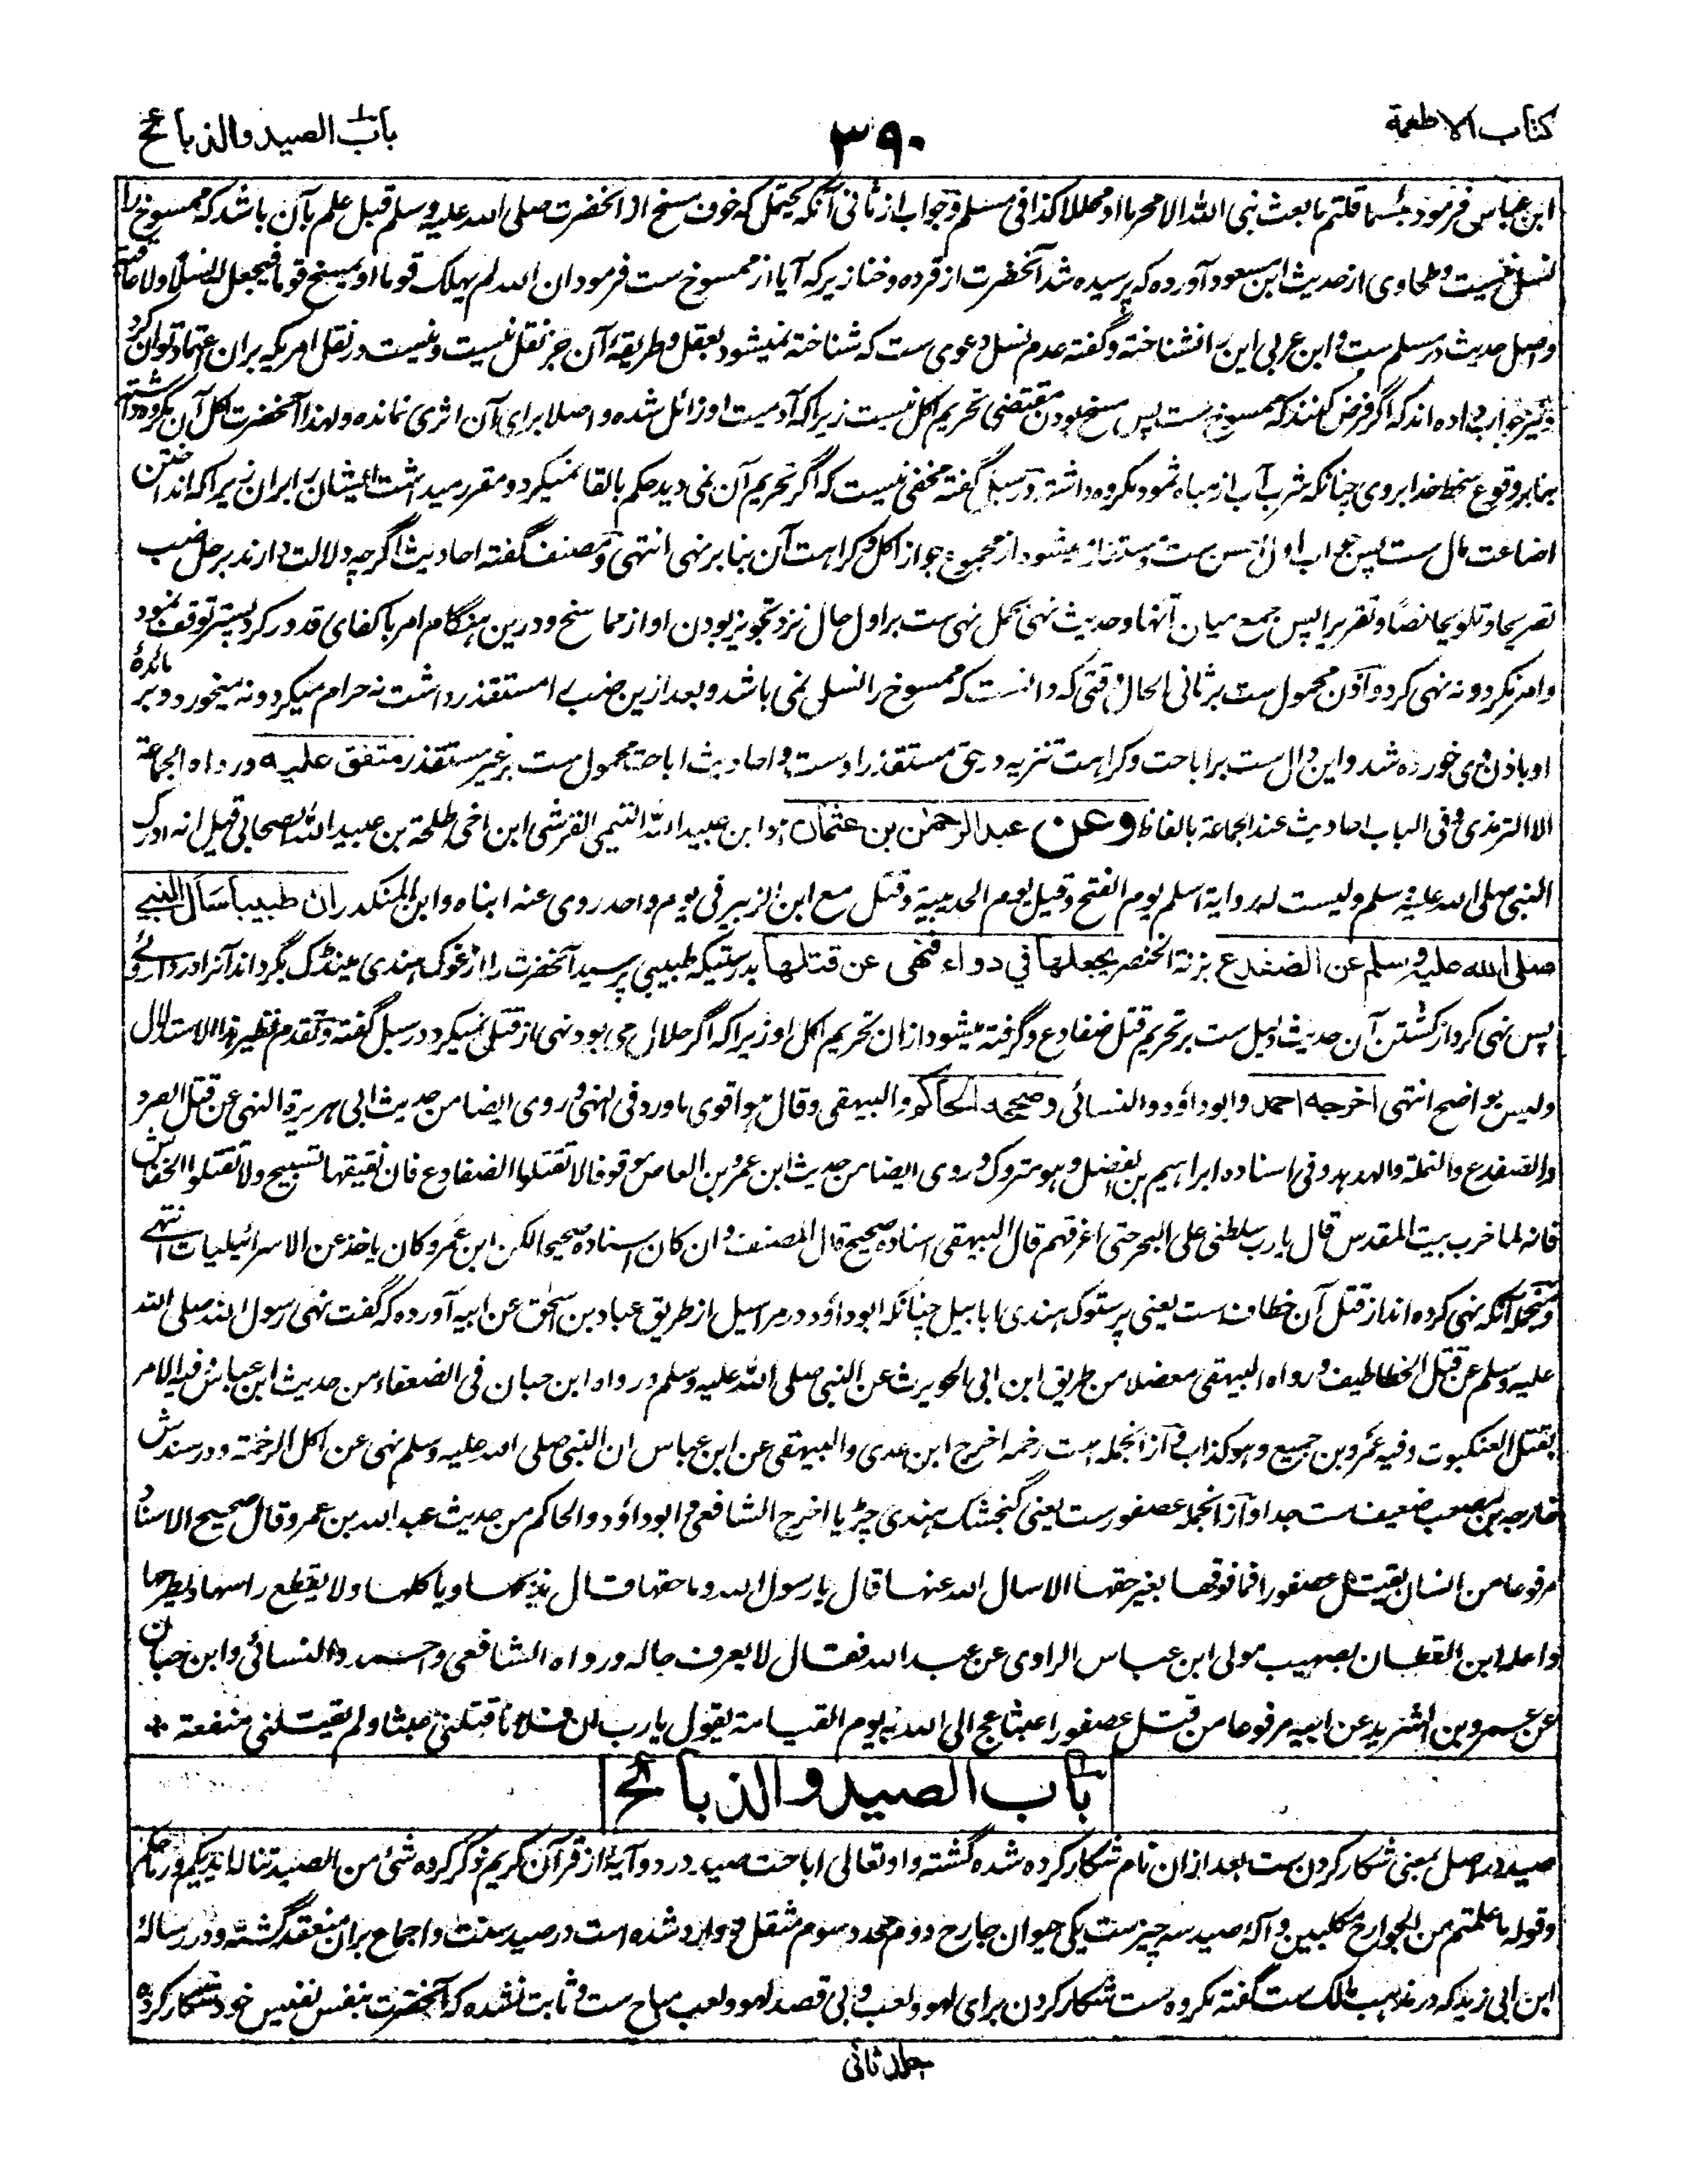 کتاب الاطعمة
۳۹۰
باب الصید والذبائح
ابن عباس فرمود بئسما قلتم ما بعث نبی الله الا محرما او محللا کذا فی مسلم وجواب از ثانی آنکه یحتمل که خوف مسخ از آنحضرت صلی الله علیه وسلم قبل علم بآن باشد که ممسوخ را
نسل نیست وطحاوی از حدیث ابن مسعود آورده که پرسیده شد آنحضرت از قرده وخنازیر که آیا از ممسوخ ست فرمود ان الله لم یهلک قوما او یمسخ قوما فیجعل لهم نسلا ولا عاقبة
واصل حدیث در مسلم ست وابن عربی این را نشناخته وگفته عدم نسل دعوی ست که شناخته نمیشود بعقل وطریقهٔ آن جز نقل نیست ونیست در نقل امریکه بران اعتماد توان کرد
ونیز جواب داده اند که اگر فرض کنند که ممسوخ ست پس مسخ بودن مقتضی تحریم اکل نیست زیرا که آدمیت او زائل شده واصلا برای آن اثری نمانده ولهذا آنحضرت اکل آن مکروه داشته
بنا بر وقوع سخط خدا بروی چنانکه شرب آب از میاه ثمود مکروه داشته ودر سبل گفته مخفی نیست که اگر تحریم آن نمی دید حکم بالقا نمیکرد ومقرر میداشت ایشان را بران زیرا که انداختن
اضاعت مال ست پس جواب اول احسن ست ومستفاد میشود از مجموع جواز اکل وکراهت آن بنا بر نهی انتهی ومصنف گفته احادیث اگرچه دلالت دارند بر حل ضب
تصریحا وتلویحا نصا وتقریرا پس جمع میان آنها وحدیث نهی حمل نهی ست بر اول حال نزد تجویز بودن او از مما مسخ ودرین هنگام امر باکفای قدور کرد پستر توقف نمود
وامر نکرد ونه نهی کرد واذن محمول ست بر ثانی الحال وقتی که دانست که ممسوخ را نسل نمی باشد وبعد ازین ضب را مستقذر داشت نه حرام میکرد ونه میخورد وبر مائدهٔ
او باذن وی خورده شد واین دال ست بر اباحت وکراهت تنزیه در حق مستقذر اوست واحادیث اباحت محمول ست بر غیر مستقذر متفق علیه ورواه الجماعة
الا الترمذی وفی الباب احادیث عند الجماعة بالفاظ وعن عبد الرحمٰن بن عثمان هو ابن عبید الله التیمی القرشی ابن اخی طلحة بن عبید الله الصحابی قیل انه ادرک
النبی صلی الله علیه وسلم ولیست له روایة اسلم یوم الفتح وقیل یوم الحدیبیة وقتل مع ابن الزبیر فی یوم واحد روی عنه ابناه وابن المنکدر ان طبیبا سأل النبی
صلی الله علیه وسلم عن الضفدع بزنة الخنصر یجعلها فی دواء فنهی عن قتلها بدرستیکه طبیبی پرسید آنحضرت را از غوک هندی مینڈک بگرداند آنرا در داروئے
پس نهی کرد از کشتن آن حدیث دلیل ست بر تحریم قتل ضفادع وگرفته میشود ازان تحریم اکل او زیرا که اگر حلال می بود نهی از قتل نمیکرد در سبل گفته وتقدم نظیر هذا الاستدلال
ولیس بواضح انتهی اخرجه احمد وابو داؤد والنسائی وصححه الحاکم والبیهقی وقال هو اقوی ما ورد فی النهی وروی ایضا من حدیث ابی هریرة النهی عن قتل الصرد
والضفدع والنملة والهدهد وفی اسناده ابراهیم بن الفضل وهو متروک وروی ایضا من حدیث ابن عمرو بن العاص موقوفا لا تقتلوا الضفادع فان نقیقها تسبیح ولا تقتلوا الخفاش
فانه لما خرب بیت المقدس قال یا رب سلطنی علی البحر حتی اغرقهم قال البیهقی اسناده صحیح قال المصنف وان کان اسناده صحیحا لکن ابن عمرو کان یاخذ عن الاسرائیلیات انتهی
ومنجمله آنکه نهی کرده اند از قتل آن خطاف ست یعنی پرستوک هندی ابابیل چنانکه ابو داؤد در مراسیل از طریق عباد بن اسحٰق عن ابیه آورده که گفت نهی رسول الله صلی الله
علیه وسلم عن قتل الخطاطیف ورواه البیهقی معضلا من طریق ابن ابی الحویرث عن النبی صلی الله علیه وسلم ورواه ابن حبان فی الضعفاء من حدیث ابن عباس وفیه الامر
بقتل العنکبوت وفیه عمرو بن جمیع وهو کذاب وازانجمله ست رخمه اخرج ابن عدی والبیهقی عن ابن عباس ان النبی صلی الله علیه وسلم نهی عن اکل الرخمة ودر سندش
خارجه بن مصعب ضعیف ست جدا وازانجمله عصفور ست یعنی گنجشک هندی چڑیا اخرج الشافعی وابو داؤد والحاکم من حدیث عبد الله بن عمرو وقال صحیح الاسناد
مرفوعا ما من انسان یقتل عصفورا فما فوقها بغیر حقها الا سال الله عنها قال یا رسول الله وما حقها قال یذبحها ویاکلها ولا یقطع راسها ویطرحها
واعله ابن القطان بصهیب مولی ابن عباس الراوی عن عبد الله فقال لا یعرف حاله ورواه الشافعی واحمد والنسائی وابن حبان
عن عمرو بن الشرید عن ابیه مرفوعا من قتل عصفورا عبثا عج الی الله به یوم القیامة یقول یا رب ان فلانا قتلنی عبثا ولم یقتلنی منفعة +
باب الصید والذبائح
صید در اصل بمعنی شکار کردن ست بعد ازان نام شکار کرده شده گشته واو تعالی اباحت صید در دو آیهٔ از قرآن کریم ذکر کرده شئ من الصید تناله ایدیکم ورماحکم
وقوله ما علمتم من الجوارح مکلبین وآلهٔ صید سه چیز ست یکی حیوان جارح دوم محدد سوم مثقل ووارد شده است در صید سنت واجماع بران منعقد گشته ودر رسالهٔ
ابن ابی زید که در مذهب مالک ست گفته مکروه ست شکار کردن برای لهو ولعب وبی قصد لهو ولعب مباح ست وثابت نشده که آنحضرت بنفس نفیس خود شکار کرده
جلد ثانی